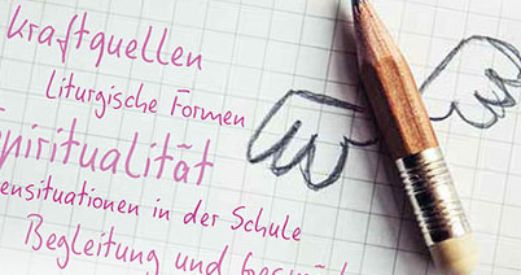 Kraftquellen
Liturgische Formen
Spiritualität
ensituationen in der Schule
Begleitung und